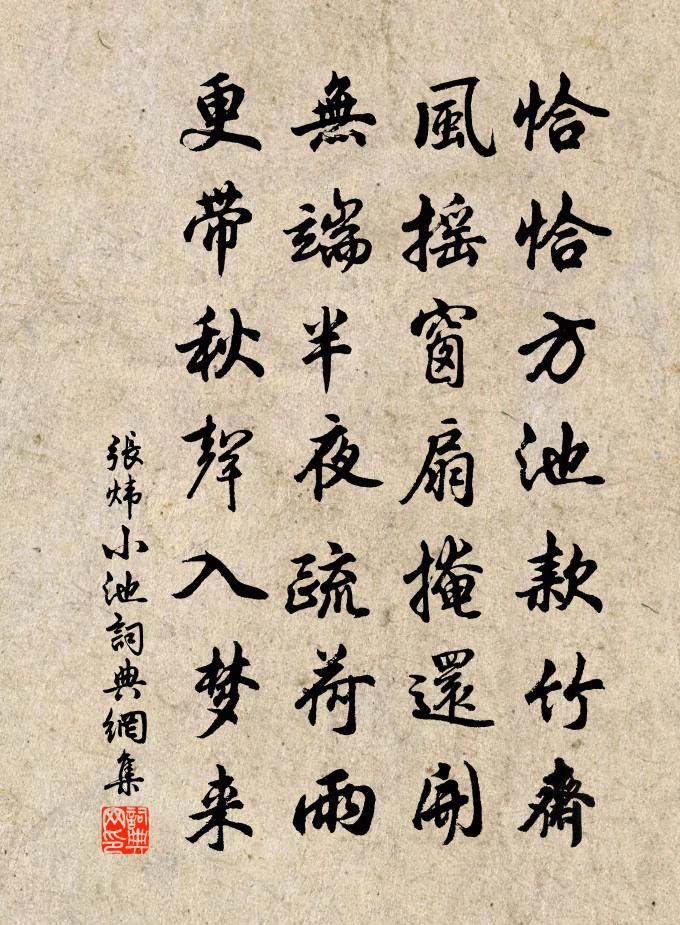 恰恰方池款竹齋
風摇窗扇掩還開
無端半夜疏荷雨
更带秋聲入梦来
張炜小池詞典網集
詞典网印